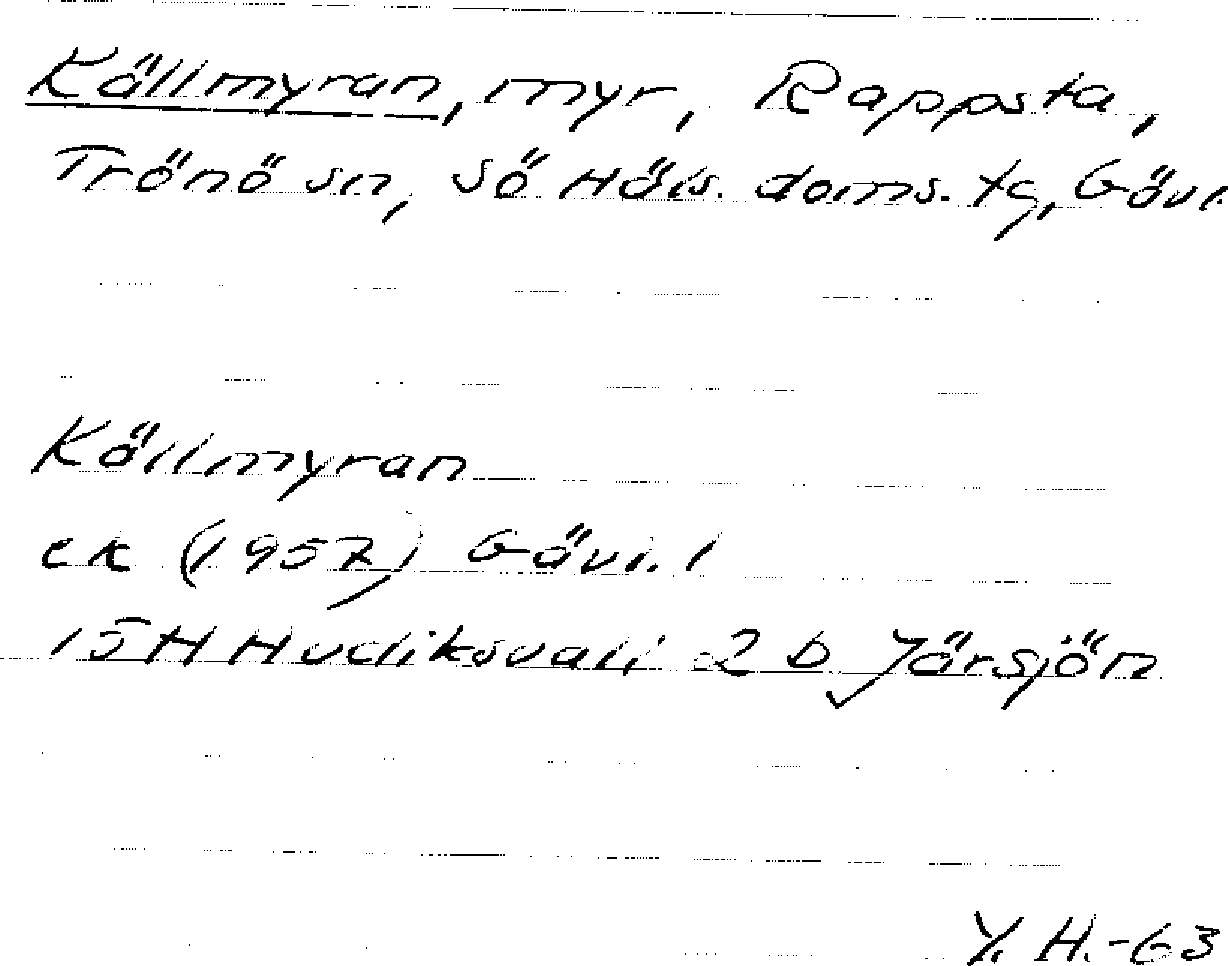 Källmyran, myr, Rappsta,
Trönö sn, Sö Häls. doms. tg, Gävl.
Källmyran
ek (1957) Gävl. l
15H Hudiksvall 2 b Järsjön
Y. H.-63